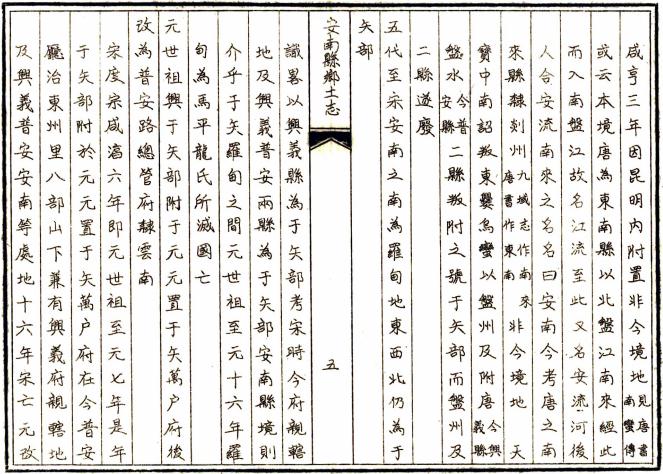 咸亨三年因昆明內附置非今境地見唐書南蠻傳
或云本境唐為東南縣以北盤江南來經此
而入南盤江故名江流至此又名安流河後
人合安流南來之名名曰安南今考唐之南
來縣隸剡州九域志作南來唐書作東南非今境地 天
寶中南詔叛東爨烏蠻以盤州及附唐今興義縣
盤水今普安縣二縣叛附之號于矢部而盤州及
二縣遂廢
五代至宋安南之南為羅甸地東西北仍為于
矢部
安南縣鄉土志
五
識畧以興義縣為于矢部考宋時今府親轄
地及興義普安兩縣為于矢部安南縣境則
介乎于矢羅甸之間元世祖至元十六年羅
甸為馬平龍氏所滅國亡
元世祖興于矢部附于元元置于矢萬户府後
改為普安路總管府隸雲南
宋度宗咸淳六年即元世祖至元七年是年
于矢部附於元元置于矢萬户府在今普安
廳治東州里八部山下兼有興義府親轄地
及興義普安安南等處地十六年宋亡元改